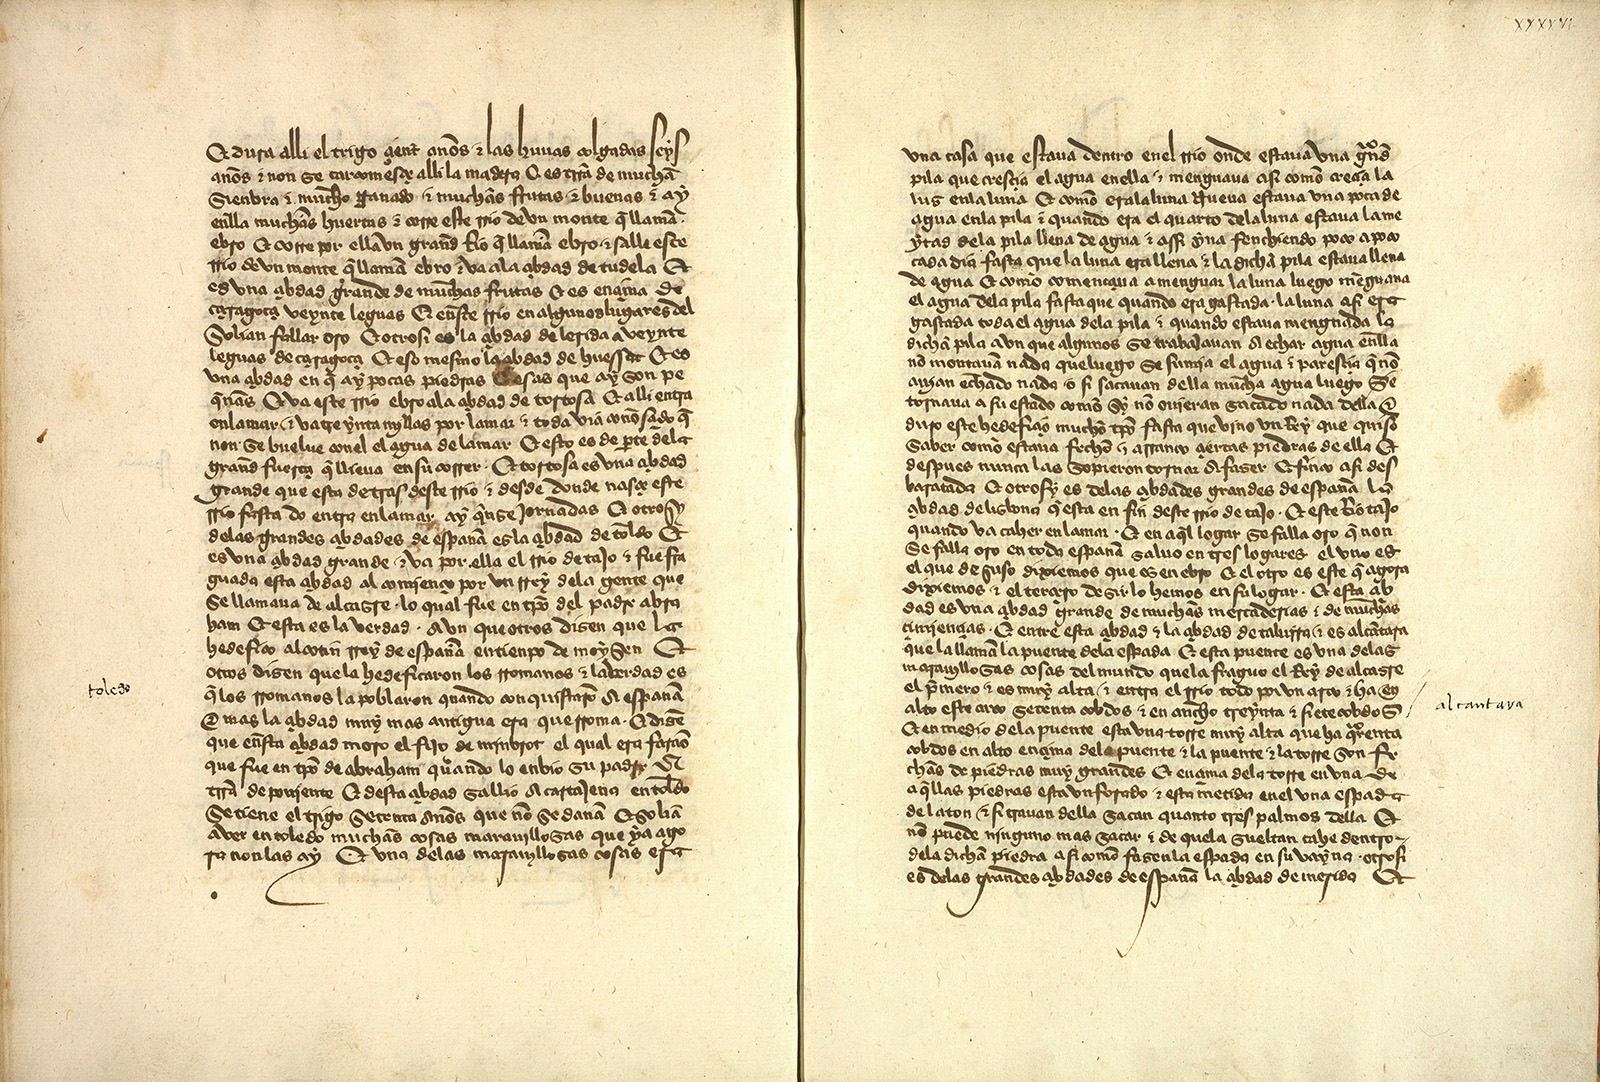 Et dura alli el trigo çient años & las huuas colgadas seys
años & non se carcomesçe alli la madera Et es trra de mucha
Sienbra & mucho ganado & muchas frutas & buenas & ay
enlla muchas huertas & corre este rrio de vn monte q llaman
ebro Et corre por ella vn grand Rio q llaman ebro & salle este
rrio de vn monte q llaman ebro & va a la çibdad de tudela Et
es vna çibdad grande de muchas frutas Et es ençima de
caragoça veynte leguas Et en este rrio en algunos lugares del
Solian fallar oro Et otrosi es la çibdad de lerida a veynte
leguas de caragoça Et eso mesmo la çibdad de huessca Et es
vna çibdad en q ay pocas piedras Et esas que ay son pe
q̄nas Et va este rrio ebro a la çibdad de tortosa Et alli entra
en la mar & va treynta myllas por la mar & toda via conosçado q
non se buelue con el el agua de la mar Et esto es de p̄te dela
grand fuerça q llieua en su correr Et tortosa es vna çibdad
grande que esta detras deste rrio & desde donde nasçe este
rrio fasta do entra en la mar ay q̄nse jornadas Et otrosy
de las grandes çibdades de españa es la çibdad de toledo Et
es vna çibdad grande & va por ella el rrio de tajo & fue fra
guada esta çibdad al comienço por vn rrey de la gente que
Se llamaua de alcasre lo qual fue en tp̄o del padre abra
ham Et esta es la verdad Avn que otros disen que la
hedefico alcotin rrey de españa en tienpo de moysen Et
otros disen que la hedeficaron los rromanos & la verdad es
q los rromanos la poblaron quando conquistaro A españa
Et mas la çibdad muy mas antigua era que rroma Et disen
que en esta çibdad moro el fijo de ninbrot el qual era faraon
que fue en tp̄o de abraham quando lo enbio su padre A
trra de poniente Et desta çibdad sallio A cartajena en toledo
Se tiene el trigo setenta años que non se danan Et Solian
Aver en toledo muchas cosas marauillosas que ya ago
ra non las ay Et vna de las marauillosas cosas era
toledo
xxxxvi
vna casa que estaua dentro en el rrio onde estaua vna grand
pila que cresçia el agua en ella & menguaua asi como creçia la
lus en la luna Et como era la luna nueua estaua vna poca de
agua en la pila & quando era el quarto de la luna estaua la me
ytad de la pila llena de agua & assi yua fenchiendo poco a poco
cada dia fasta que la luna era llena & la dicha pila estaua llena
de agua Et como començaua a menguar la luna luego menguaua
el agua de la pila fasta que quando era gastada la luna asi era
gastada toda el agua de la pila & quando estaua menguada la
dicha pila avn que algunos se trabajauan A echar agua en lla
no montaua nada que luego se sumia el agua & paresçia q no
auian echado nada o si sacauan della mucha agua luego Se
tornaua a su estado como sy no ouieran sacado nada della &
duro este hedefiçio mucho tp̄o fasta que vino vn Rey que quiso
saber como estaua fecho & arranco çiertas piedras de ella Et
despues nunca las sopieron tornar A faser Et finco asi des
baratada Et otrosy es de las çibdades grandes de españa la
çibdad de lisbona q esta en fin deste rrio de tajo Et este Rio tajo
quando va caher en la mar Et en aq̄l logar se falla oro q non
Se falla oro en toda españa saluo en tres logares el vno es
el que de suso diximos que es en ebro Et el otro es este q agora
diximos & el terçero desir lo hemos en su logar Et esta çib
dad es vna çibdad grande de muchas mercaderias & de muchas
simiençias Et entre esta çibdad & la çibdad de taluira & es alcantara
que la llaman la puente de la espada Et esta puente es vna de las
marauillosas cosas del mundo que la fraguo el Rey de alcasre
el p̄mero & es muy alta & entra el rrio todo por vn arco & ha en
alto este arco setenta cobdos & en ancho treynta & siete cobdos
Et en medio de la puente esta vna torre muy alta que ha q̄renta
cobdos en alto ençima dela puente & la puente & la torre son fe
chas de piedras muy grandes Et ençima dela torre en vna de
aquellas piedras esta vn forado & esta metida en el vna espada
de laton & si trauan della sacan quanto tres palmos della Et
no puede ninguno mas sacar & de que la sueltan cahe dentro
de la dicha piedra asi como fase la espada en su vayna otrosi
es de las grandes çibdades de españa la çibdad de merida Et
alcantara